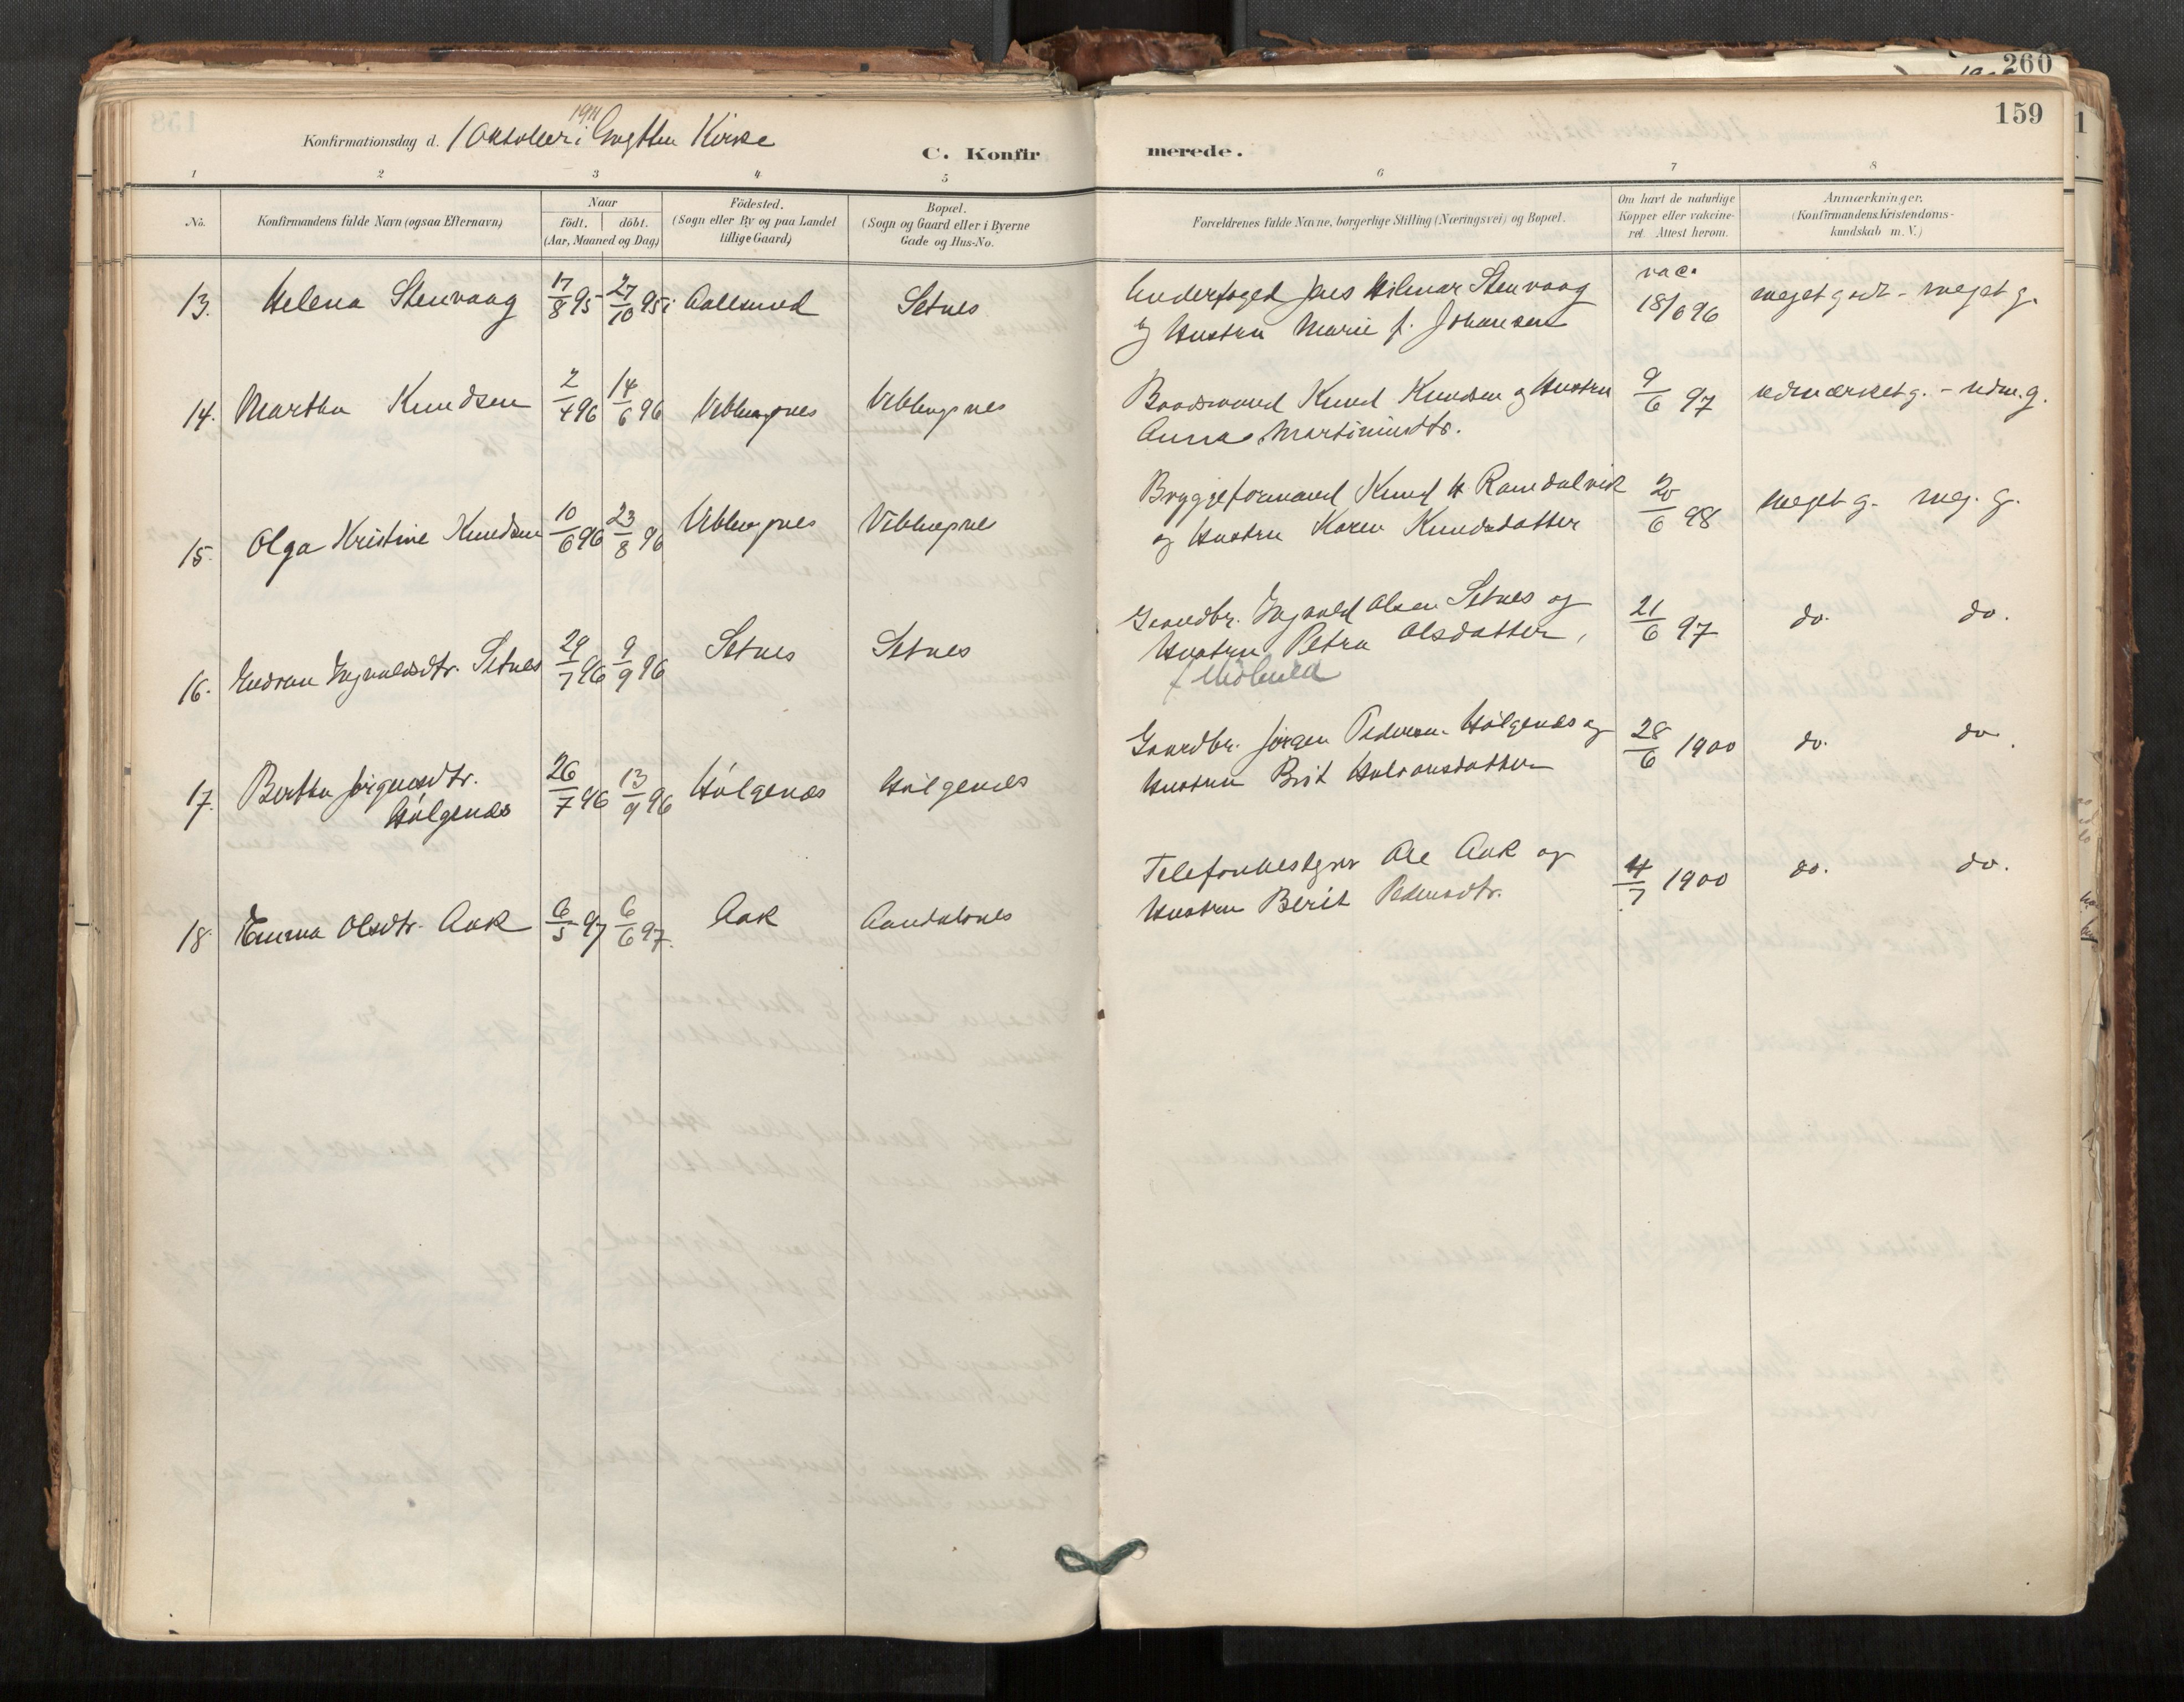 260
159
1911
Konfirmationsdag d. 1 Oktober i Grytten Kirke
C. Konfirmerede.
1 2 3 4 5 6 7 8
No.
Konfirmandens fulde Navn (ogsaa Efternavn)
Naar
födt. döbt.
(Aar, Maaned og Dag)
Födested.
(Sogn eller By og paa Landet
tillige Gaard)
Bopæl.
(Sogn og Gaard eller i Byerne
Gade og Hus-No.
Forældrenes fulde Navne, borgerlige Stilling (Næringsvei) og Bopæl.
Om havt de naturlige
Kopper eller vakcine-
ret. Attest herom.
Anmærkninger.
(Konfirmandens Kristendoms-
kundskab m. V.)
13. Helena Stenvaag 17/8 95 27/10 95 i Aalesund Setnes
Underfoged Jens Hilmar Stenvaag
og Hustru Marie f. Johansen
vac.
18/6 96
meget godt - meget g.
14. Martha Knudsen 2/4 96 14/6 96 Veblungnes Veblungnes
Baadsmand Knud Knudsen og Hustru
Anna Martinusdtr.
9/6 97
udmærket g. - udm. g.
15. Olga Kristine Knudsen 10/6 96 23/8 96 Veblungnes Veblungnes
Bryggeformand Knud H Ramsdalvik
og Hustru Karen Knudsdatter
20/6 98
meget g. meg. g.
16. Gudrun Ingvaldsdtr. Setnes 29/7 96 9/9 96 Setnes Setnes
Gaardbr. Ingvald Olsen Setnes og
Hustru Petra Olsdatter,
21/6 97
do. do.
17. Bertha Jörgensdtr.
Hólgenæs
26/7 96 13/9 96 Hólgenæs Hólgenæs
Gaardbr. Jörgen Pedersen Hólgenæs og
Hustru Brit Halvorsdatter
28/6 1900
do. do.
18. Emma Olsdtr. Aak 6/5 97 6/6 97. Aak Aandalsnes
Telefonbestyrer Ole Aak og
Hustru Berit Pedersdtr.
4/7 1900
do. do.